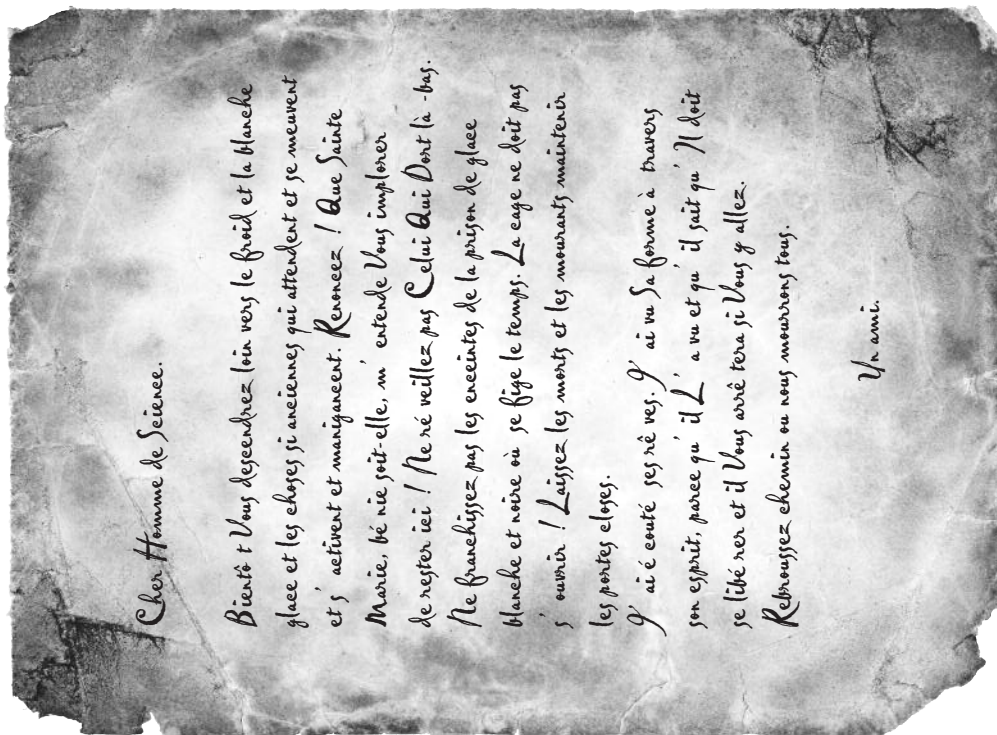 Cher Homme de Science.
Bientôt Vous descendrez loin vers le froid et la blanche
glace et les choses si anciennes qui attendent et se meuvent
et s’ activent et manigancent. Renoncez ! Que Sainte
Marie, bé nie soit-elle, m’ entende Vous implorer
de rester ici ! Ne ré veillez pas Celui Qui Dort là -bas.
Ne franchissez pas les enceintes de la prison de glace
blanche et noire où se fige le temps. La cage ne doit pas
s’ ouvrir ! Laissez les morts et les mourants maintenir
les portes closes.
J’ ai é couté ses rê ves. J’ ai vu Sa forme à travers
son esprit, parce qu’ il L’ a vu et qu’ il sait qu’ Il doit
se libé rer et il Vous arrê tera si Vous y allez.
Rebroussez chemin ou nous mourrons tous.
Un ami.